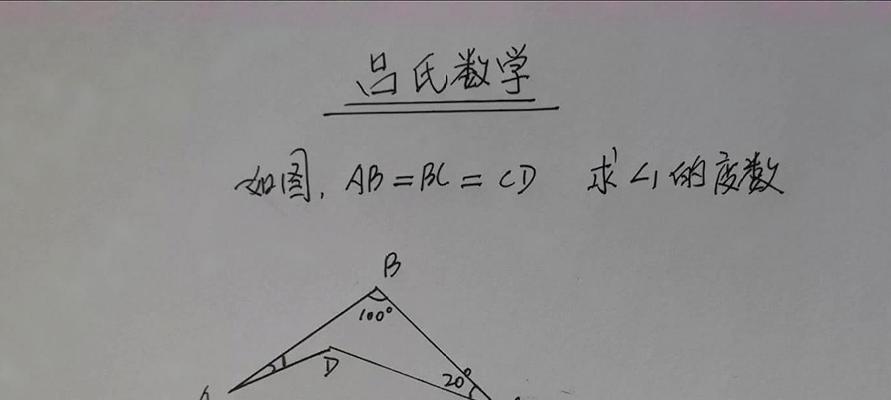 吕氏数学
如图, AB=BC=CD 求∠1的度数
B
100°
1
D
20°